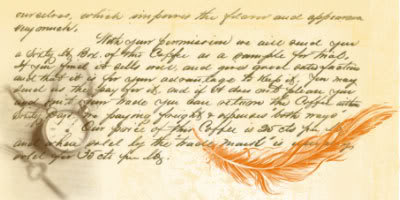 ourselves, which improves the flavor and appearance
very much.
With your permission we will send you
a Sixty lb Box of this Coffee as a sample for trial.
If you find it sells well and gives good satisfaction
and that it is for your advantage to keep it, you may
send us the pay for it, and if it does not please you
and suit your trade you can return the Coffee within
Sixty days we paying freight expenses both ways
Our price of this Coffee is 25 cts per lb.
and when sold by the trade mark is
sold for 35 cts per lb.